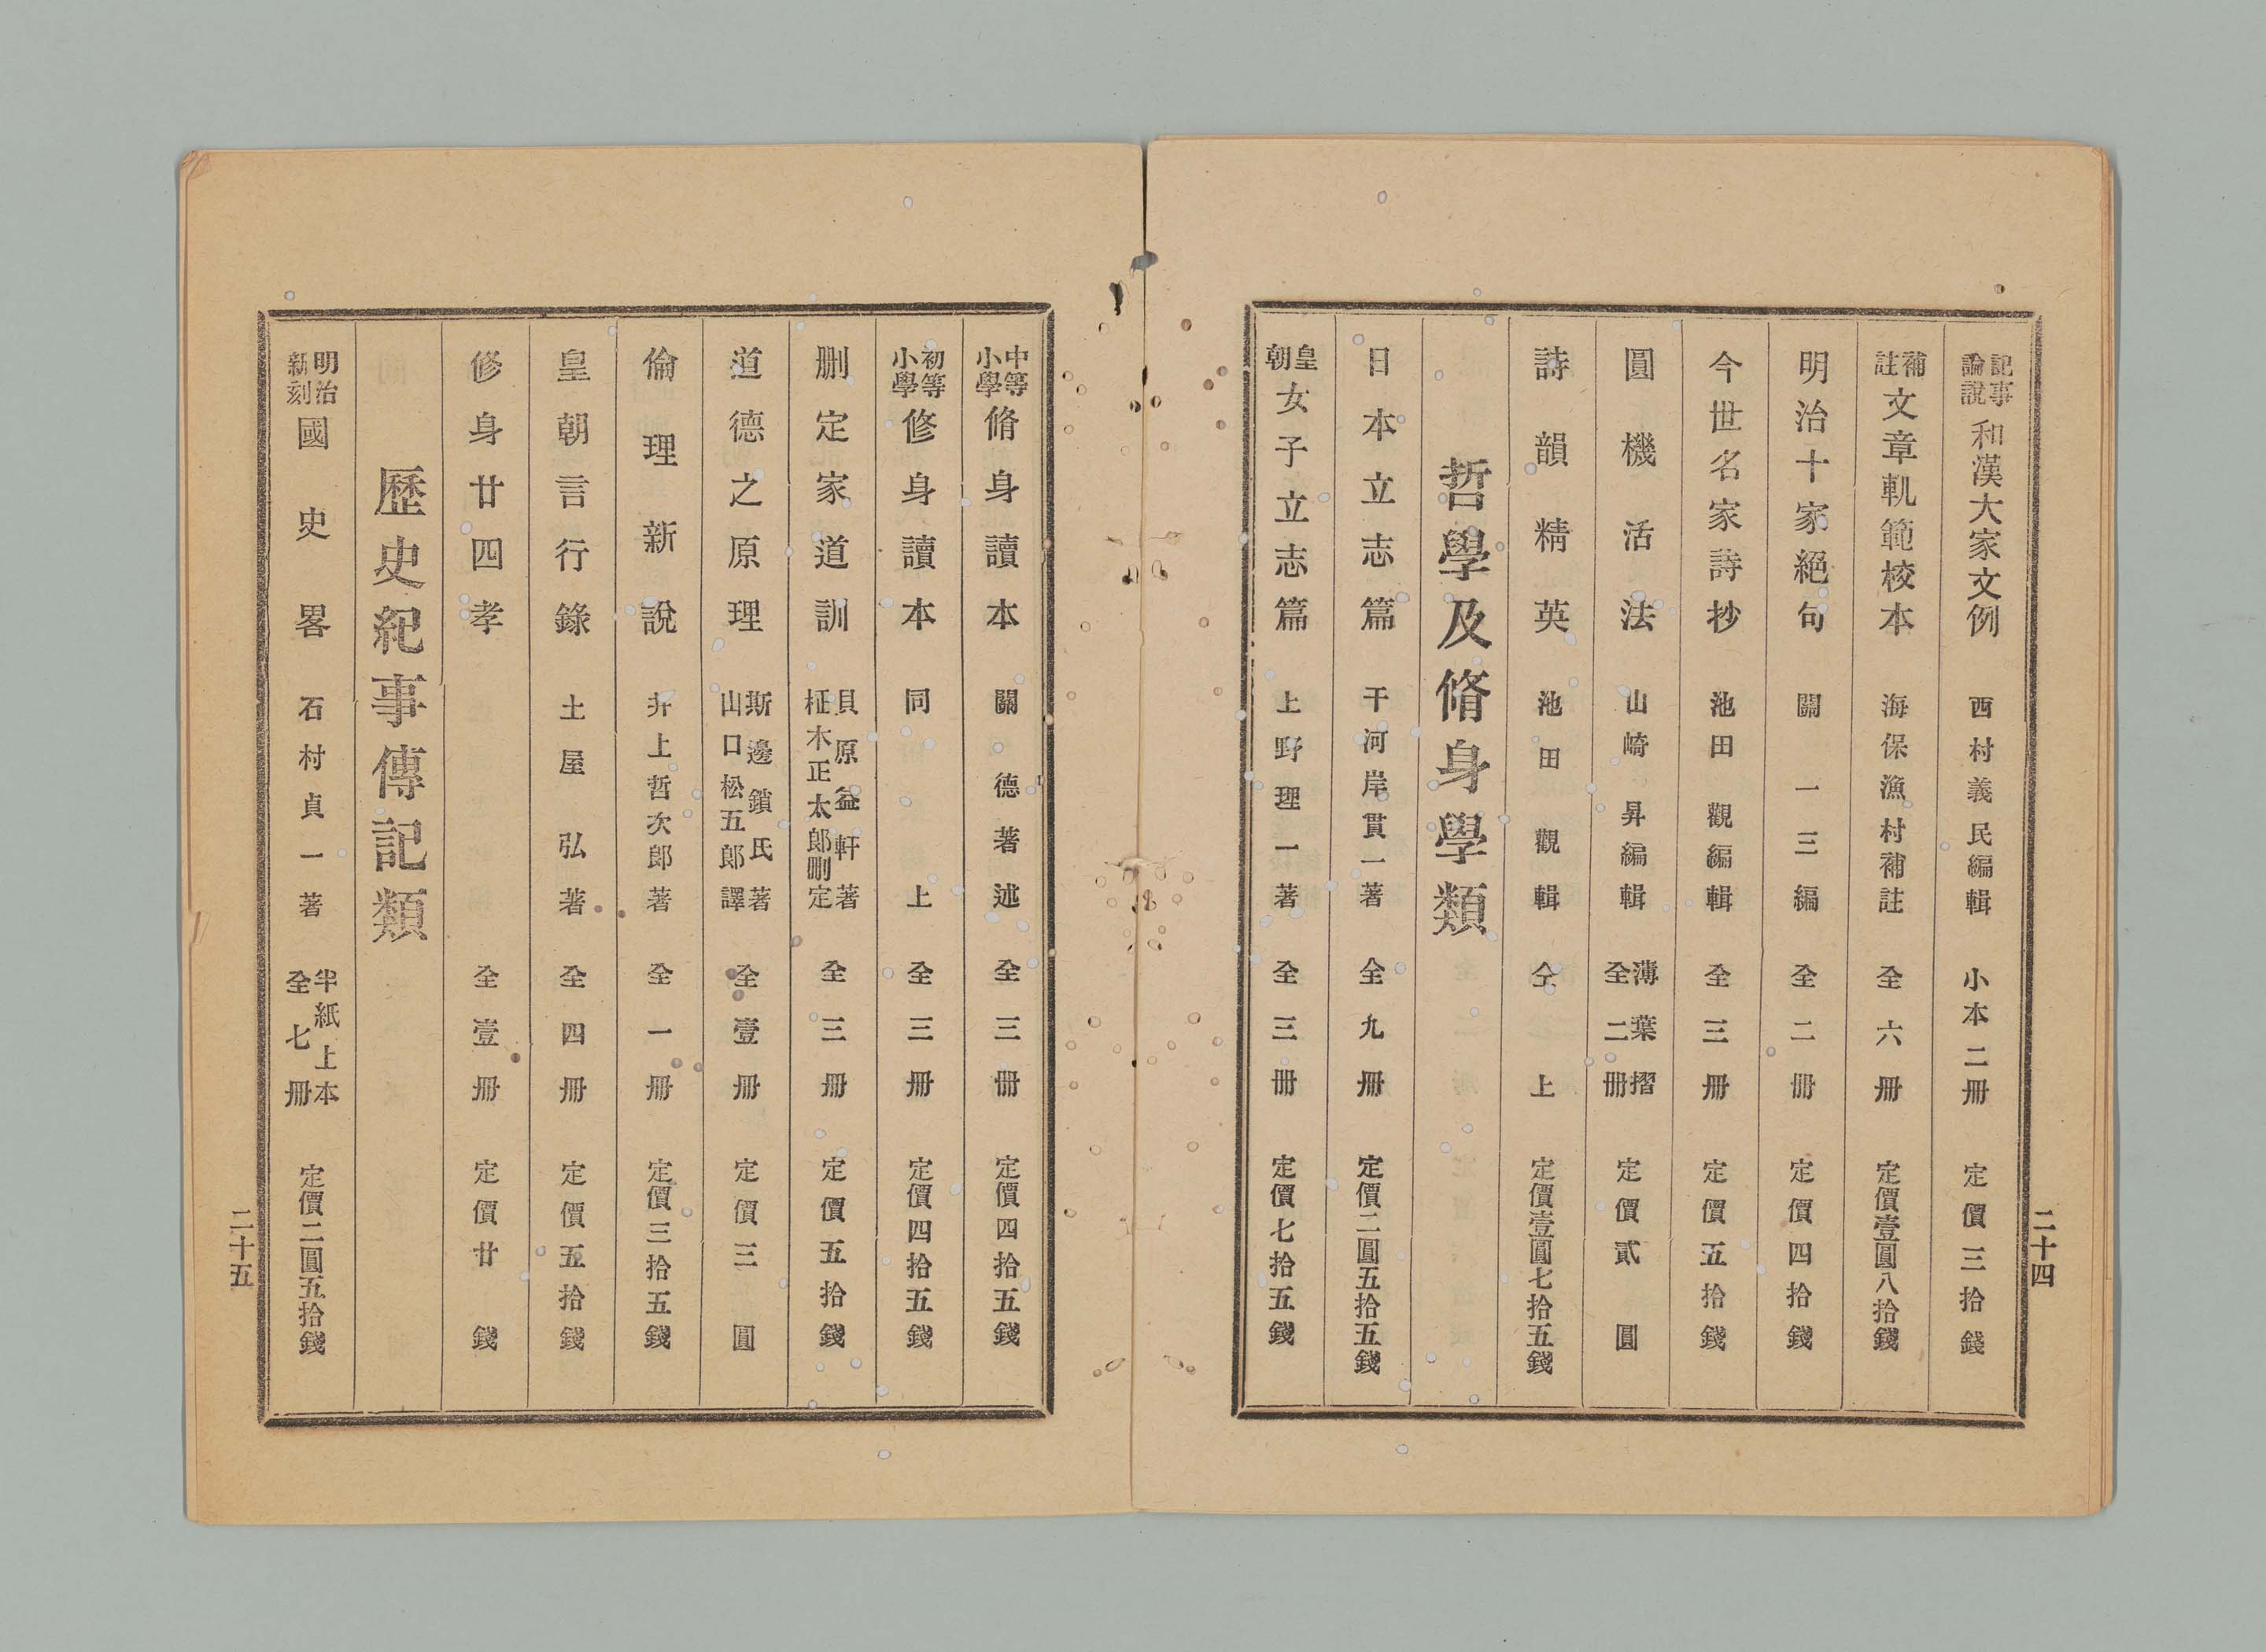 記事論說和漢大家文例 西村義民編輯 小本二冊 定價三拾錢
補註文章軌範校本 海保漁村補註 全六冊 定價壹圓八拾錢
明治十家絕句 關一三編 全二冊 定價四拾錢
今世名家詩抄 池田觀編輯 全三冊 定價五拾錢
圓機活法 山崎昇編輯 薄葉摺全二冊 定價貳圓
詩韻精英 池田觀輯 仝上 定價壹圓七拾五錢
哲學及脩身學類
日本立志篇 干河岸貫一著 全九冊 定價二圓五拾五錢
皇朝女子立志篇 上野理一著 全三冊 定價七拾五錢
二十四
中等小學脩身讀本 關德著述 全三冊 定價四拾五錢
初等小學修身讀本 同上 全三冊 定價四拾五錢
刪定家道訓 貝原益軒著 柾木正太郎刪定 全三冊 定價五拾錢
道德之原理 斯邊鎖氏著 山口松五郎譯 全壹冊 定價三圓
倫理新說 井上哲次郎著 全一冊 定價三拾五錢
皇朝言行錄 土屋弘著 全四冊 定價五拾錢
修身廿四孝 全壹冊 定價廿錢
歷史紀事傳記類
明治新刻國史畧 石村貞一著 半紙上本全七冊 定價二圓五拾錢
二十五